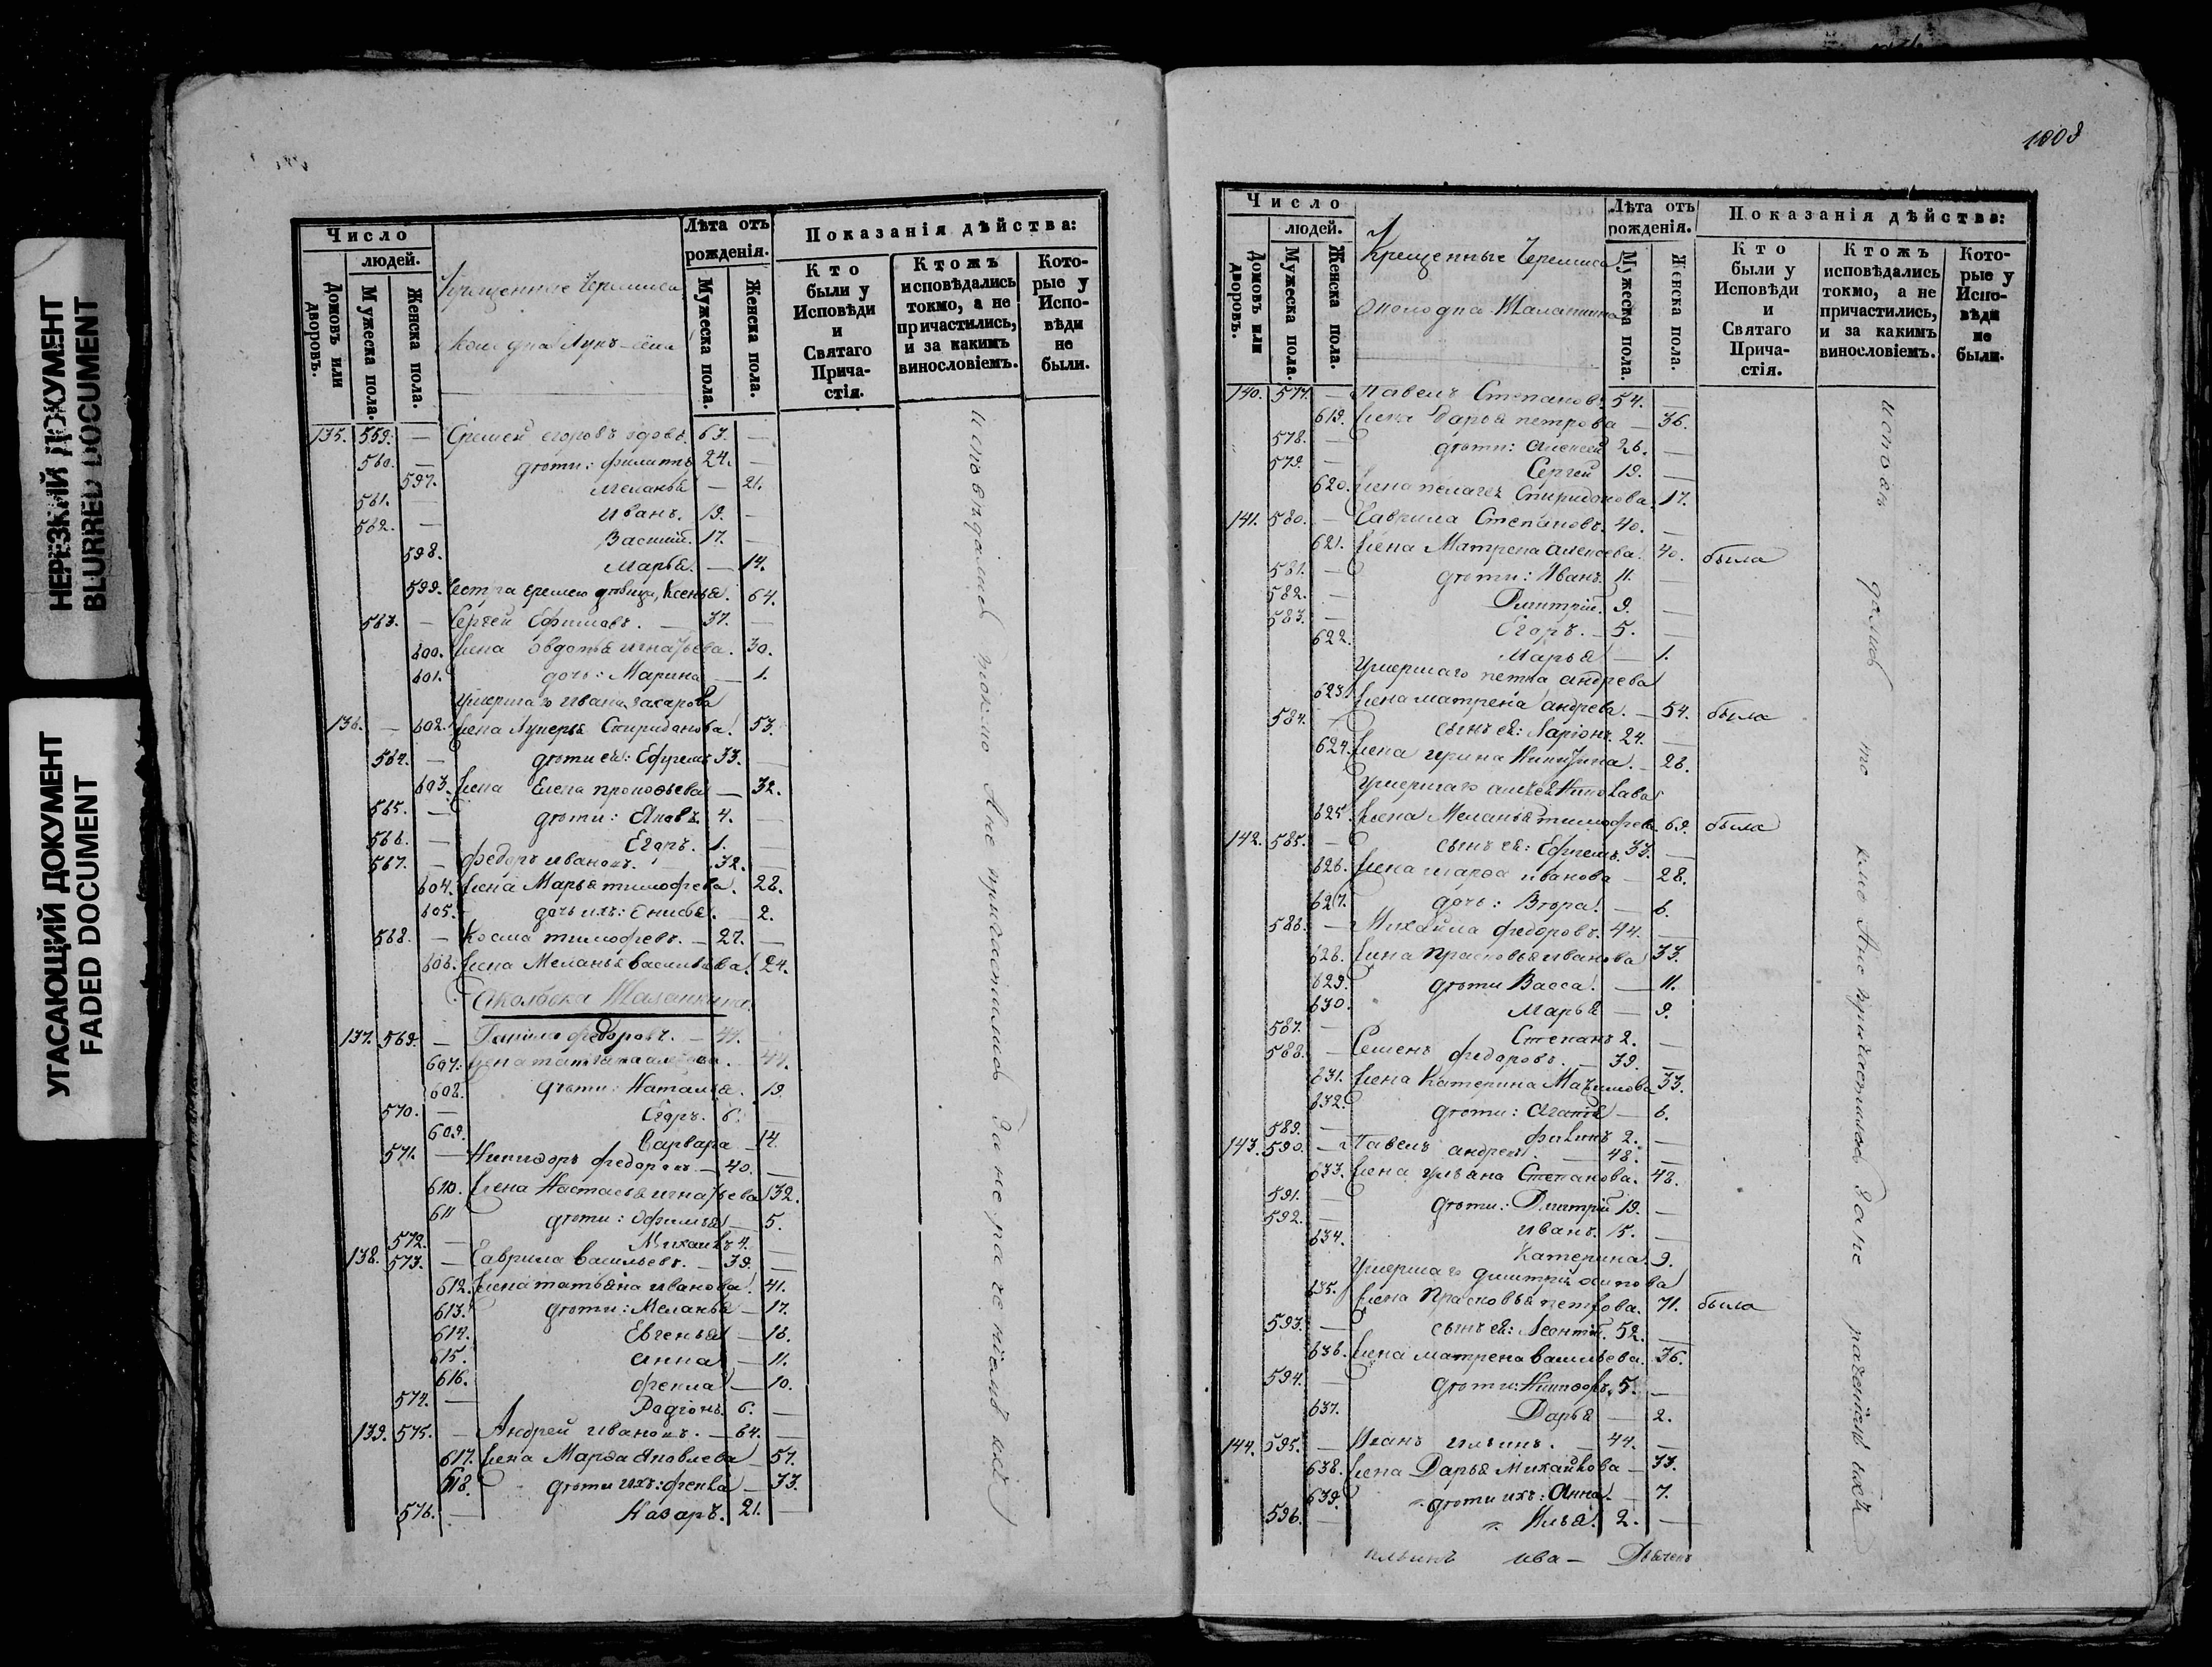 НЕРЕЗКИЙ ДОКУМЕНТ
BLURRED DOCUMENT
УГАСАЮЩИЙ ДОКУМЕНТ
FADED DOCUMENT
Число
людей.
Домовъ или дворовъ.
Мужеска пола.
Женска пола.
Крещенные Черемиса
Лѣта отъ рожденія.
Мужеска пола.
Женска пола.
Показанія дѣйства:
Кто были у Исповѣди и Святаго Прича-стія.
Ктожъ исповѣдались токмо, а не причастились, и за какимъ винословіемъ.
Кото-рые у Испо-вѣди не были.
135. 559. — Еремей егоровъ вдовъ. 63. —
560. — дѣти: филиппъ 24. —
597. Меланья — 21.
561. — Иванъ. 19. —
562. — Василий. 17. —
598. Марья. — 14.
599. Сестра еремею дѣвица, Ксенья. 64.
563. — Сергей Ефимовъ. — 37. —
600. Жена Овдотья игнатьева. 30.
601. дочь: Марина — 1.
Умершаго Ивана захарова
136. — 602. Жена Лукерья Спиридонова. 53.
564. — дѣти ея: Ефремъ 33. —
603. Жена Елена прокофьева — 32.
565. — дѣти: Яковъ. 4. —
566. — Егоръ. 1. —
567. — федоръ ивановъ. 32. —
604. Жена Марья тимофева. 28.
605. дочь ихъ: Онисья. — 2.
568. — Косма тимофевъ. — 27. —
606. Жена Меланья васильева. 24.
Околодка Шаланкина.
137. 569. — Гаврила федоровъ. — 44.
607. Жена 44.
608. дѣти: Наталья. 19.
570. — Егоръ. 6.
609. Варвара — 14.
571. — Никифоръ федоровъ. — 40. —
610. Жена Настасья игнатьева 32.
611 дѣти: Офимья — 5.
572. — Михаилъ 4. —
138. 573. — Гаврила васильевъ. — 39. —
612. Жена татьяна иванова. 41.
613. дѣти: Меланья — 17.
614. Евгенья — 16.
615. Анна — 11.
616. фекла — 10.
574. — Радіонъ. 6. —
139. 575. — Андрей ивановъ. — 64. —
617. Жена Марфа Яковлева 57.
618. дѣти ихъ: фекла — 33.
576. — Назаръ. 21. —
исповѣдались токмо а не причастились за нераченіемъ ихъ
1003
Число
людей.
Домовъ или дворовъ.
Мужеска пола.
Женска пола.
Крещенные Черемиса
Околодка Шаланкина
Лѣта отъ рожденія.
Мужеска пола.
Женска пола.
Показанія дѣйства:
Кто были у Исповѣди и Святаго Прича-стія.
Ктожъ исповѣдались токмо, а не причастились, и за какимъ винословіемъ.
Кото-рые у Испо-вѣди не были.
140. 577. — Павелъ Степановъ 54. —
619. Жена Дарья петрова — 36.
578. — дѣти: Алексей 26. —
579. — Сергей 19. —
620. Жена пелагея Спиридонова. 17.
141. 580. — Гаврила Степановъ. 40. —
621. Жена Матрена алексева. 40. была
581. — дѣти: Иванъ. 11. —
582. — Дмитрій. 9. —
583. — Егоръ. — 5. —
622. Марья — 1.
Умершаго петра андрева
623. Жена матрена андрева. — 54. была
584. — сынъ ея: Ларіонъ. 24. —
624. Жена ирина Никитина. — 26.
Умершаго
625. Жена Меланья тимофева. 69. была
142. 585. — сынъ ея: Ефремъ. 33. —
626. Жена марфа иванова — 28.
627. дочь: Вера. — 6.
586. — Михайла федоровъ. 44. —
628. Жена прасковья иванова 33.
629. дѣти Васса. — 11.
630. Марья — 9.
587. — Степанъ 2. —
588. — Семенъ федоровъ. — 39. —
631. Жена Катерина Максимова 33.
632. дѣти: Агафья — 6.
589. — 2. —
143. 590. — Павелъ андревъ. — 48. —
633. Жена ульяна Степанова. 48.
591. — дѣти: Дмитрій 19. —
592. — иванъ. 15. —
634. Катерина. 9.
Умершаго дмитрія осипова
635. Жена прасковья петрова. 71. была
593. — сынъ ея: Леонтій. 52. —
636. Жена матрена васильева. 36.
594. — дѣти: Никифоръ. 5. —
637. Дарья — 2.
144. 595. — Иванъ ильинъ. — 44. —
638. Жена Дарья Михайлова — 33.
639. дѣти ихъ: Анна. — 7.
596. — Илья. 2. —
исповѣдались токмо а не причастились за нераченіемъ ихъ
ильинъ ива — Дьячекъ